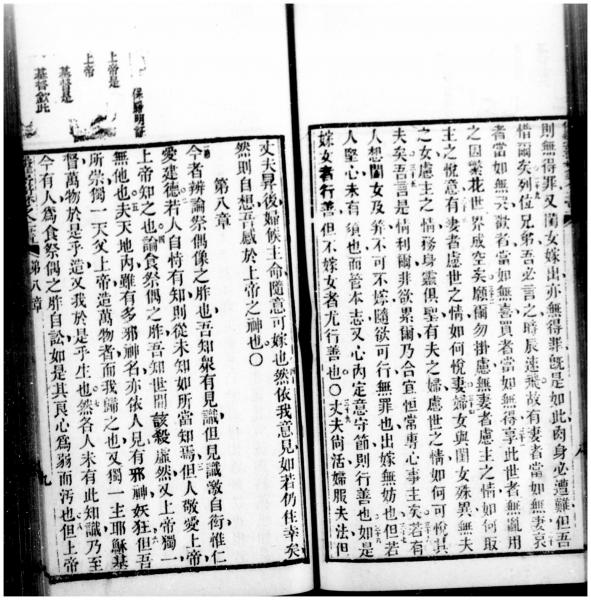 則無得罪又閨女嫁出亦無得罪旣是如此肉身必遭難但吾
惜爾矣列位兄弟吾必言之時辰速飛故有妻者當如無妻哀
者當如無哭歡者當如無喜買者當如無得享此世者無亂用
之因花世界成空矣願爾勿掛慮無妻者慮主之情如何取
主之悅意有妻者慮世之情如何悅妻婦女與閨女殊異無夫
之女慮主之情務身靈俱聖有夫之婦慮世之情如何可悅其
夫矣吾言是情利爾非欲累爾乃合宜恒常專心事主矣若有
人想閨女及笄不可不嫁隨欲可行無罪也出嫁無妨也但若
人堅心未有須也而管本志又心內定意守節則行善也如是
嫁女者行善但不嫁女者尤行善也〇丈夫尙活婦服夫法但
丈夫昇後婦候主命隨意可嫁也然依我意見如若仍住幸矣
然則自想吾感於上帝之神也〇
第八章
今者辨論祭偶像之胙也吾知衆有見識但見識激自衒惟仁
愛建德若人自恃有知則從未知如所當知焉但人敬愛上帝
上帝知之也論食祭偶之胙吾知世間該殺虛然又上帝獨一
無他也夫天地內雖有多邪神名亦依人見有邪神妖狂但吾
所崇獨一天父上帝造萬物者而我歸之也又獨一主耶穌基
督萬物於是乎造又我於是乎生也然各人未有此知識乃至
今有人爲食祭偶之胙自訟如是其良心爲弱而汚也但上帝
第八章
九
上帝是
上帝
基督是
基督欽此